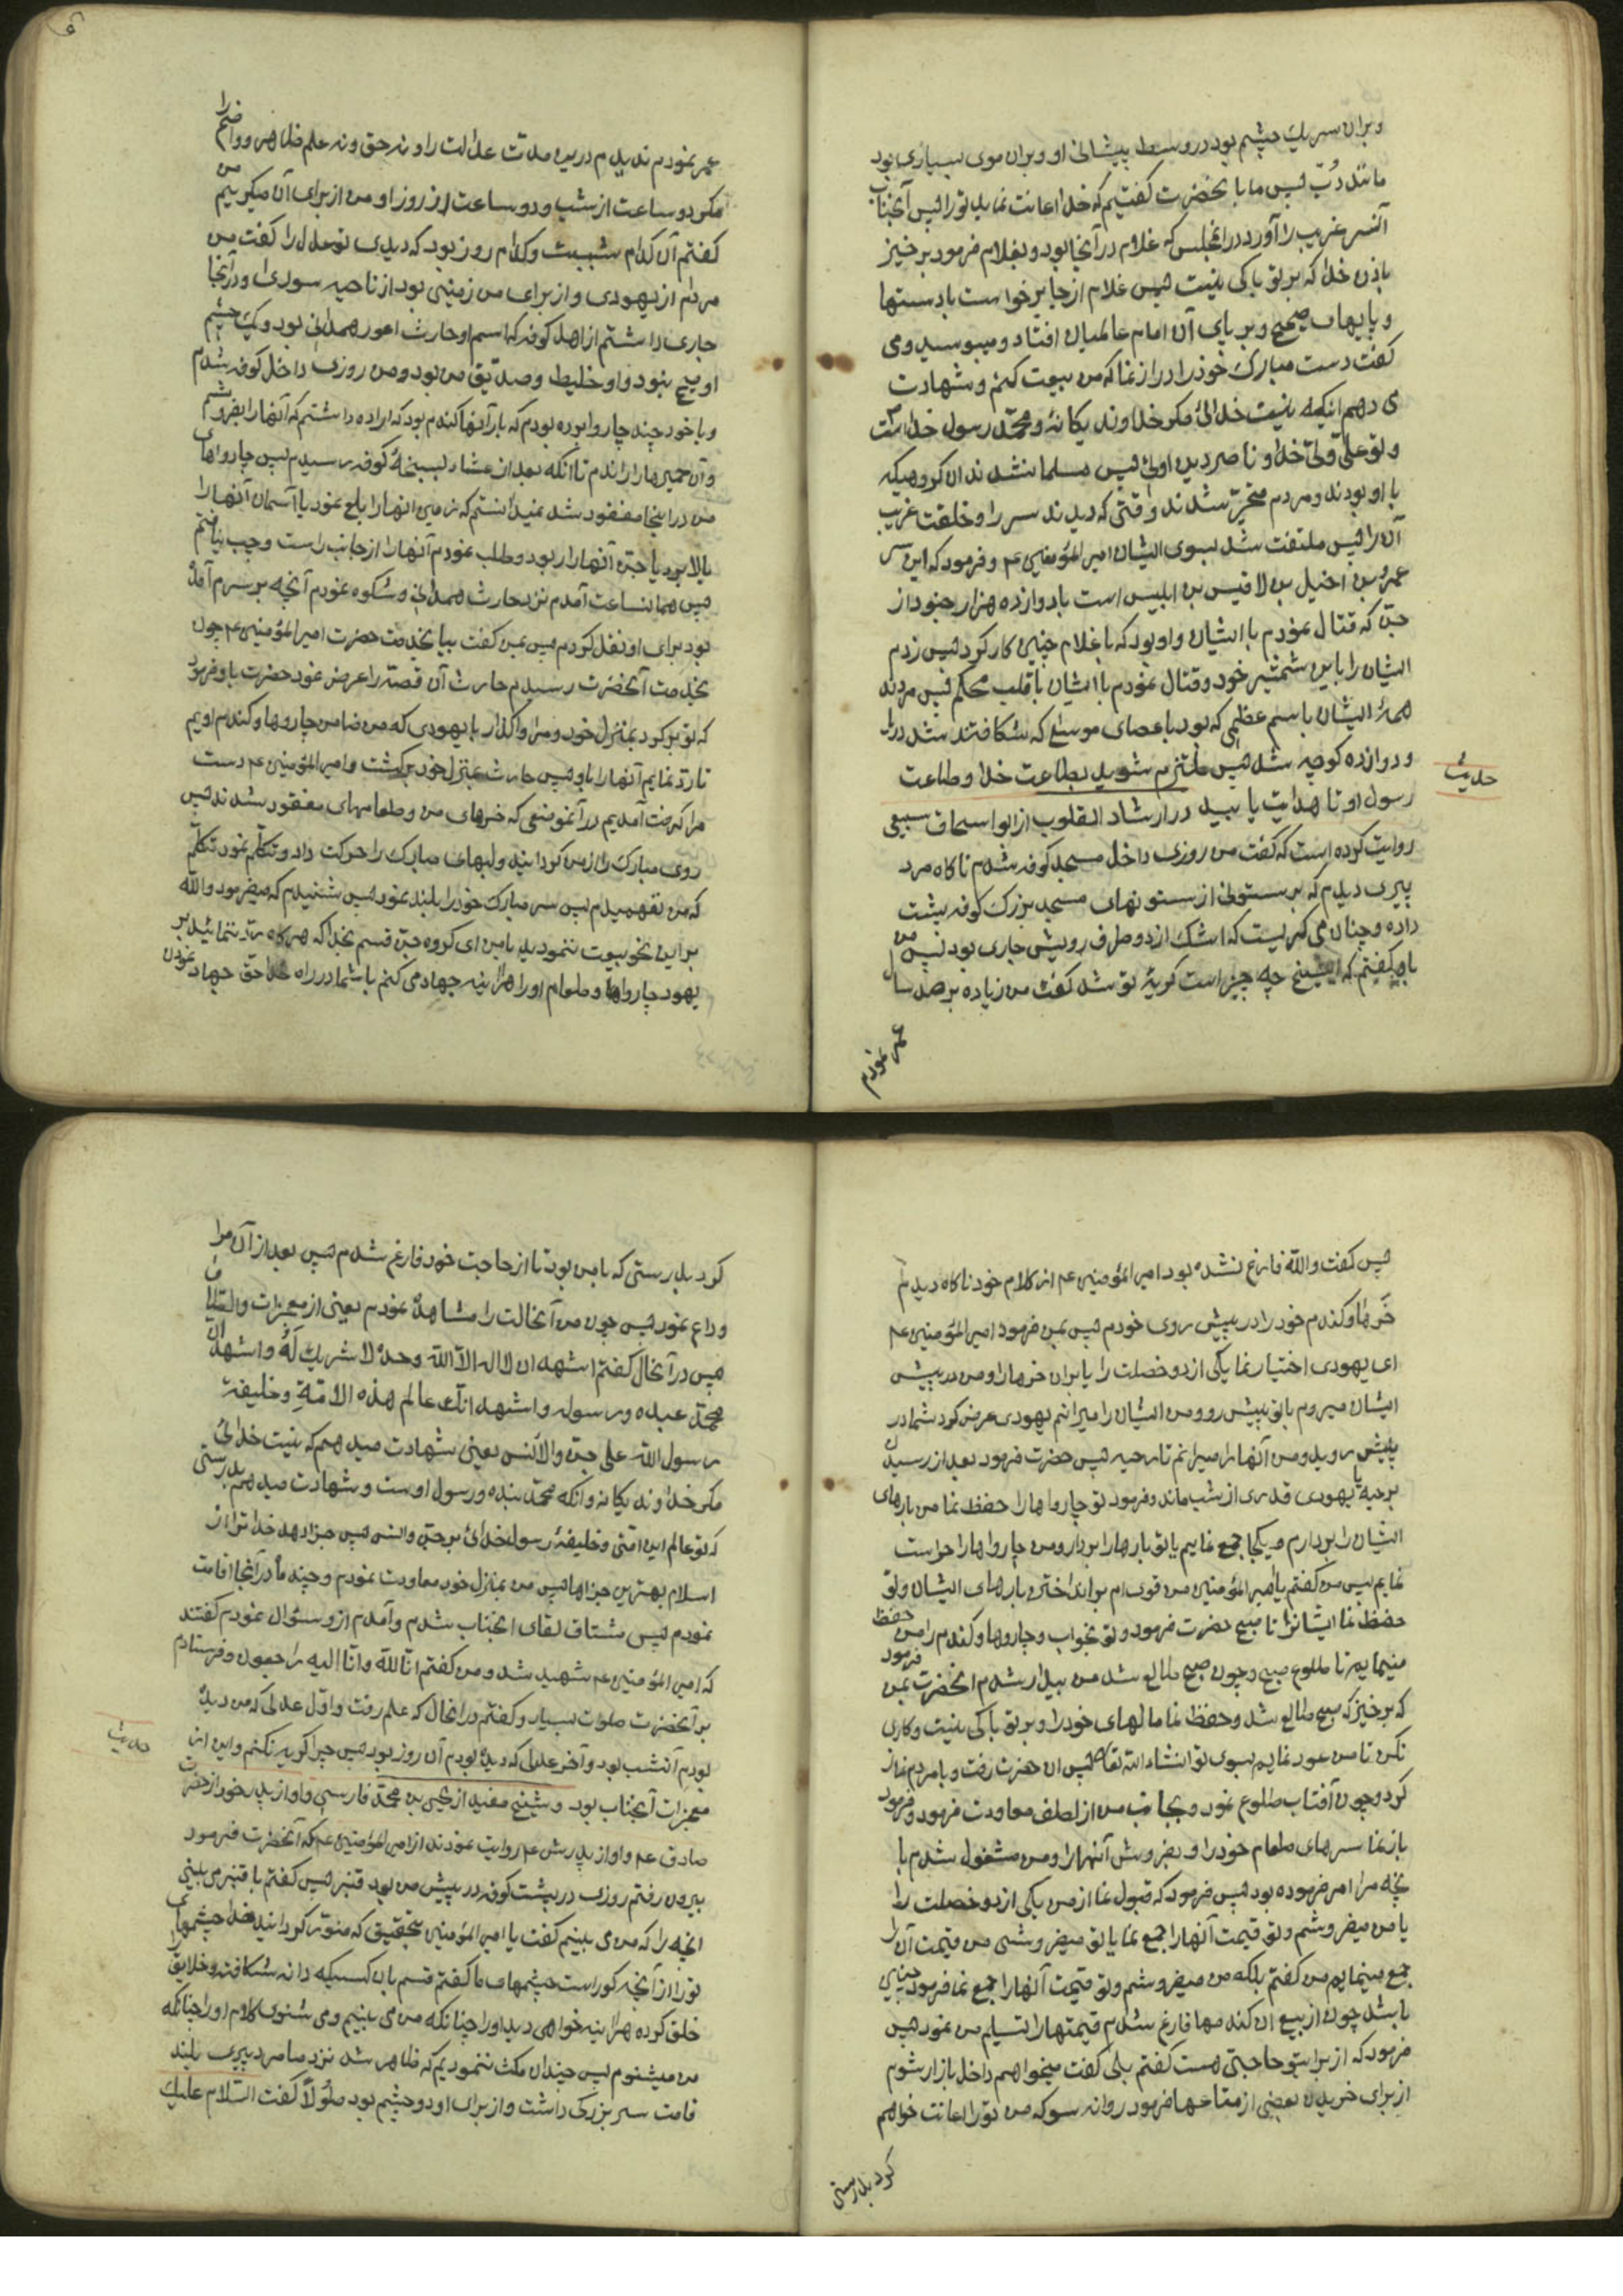 و بران سر یک چشم بود در وسط پیشانی او و بران موی بسیاری بود
مانند دُبّ پس ما با نحضرت کفتیم که خدا اعانت نماید تو را پس آنجناب
آنسر غریب را آورد در انمجلس که غلام در آنجا بود و بغلام فرمود بر خیز
باذن خدا که بر تو باکی نیست پس غلام از جا بر خواست با دستها
و پایهای صحیح و بر پای آن امام عالمیان افتاد و میبوسید و می
کفت دست مبارک خود را دراز نما که من بیعت کنم و شهادت
می دهم اینکه نیست خدائی مکر خداوند یکانه و محمّد رسول خدا است
و تو علیّ ولیّ خدا و ناصر دین اوئی پس مسلمان شدند ان کروهیکه
با او بودند و مردم متحیّر شدند وقتی که دیدند سر را و خلقت غریب
آن را پس ملتفت شد بسوی ایشان امیر المؤمنین ع و فرمود که این سر
عمرو بن اخیل بن لاقیس بن ابلیس است با دوازده هزار جنود از
جنّ که قتال نمودم با ایشان و او بود که با غلام چنین کار کرد پس زدم
ایشان را باین شمشیر خود و قتال نمودم با ایشان با قلب محکم پس مردند
همهٔ ایشان باسم عظمی که بود با عصای موسی ع که شکافته شد دریا
و دوازده کوچه شد پس ملتزم شوید بطاعت خدا و طاعت
حدیث
رسول او تا هدایت یابید در ارشاد القلوب از ابو اسحاق سبیعی
روایت کرده است که کفت من روزی داخل مسجد کوفه شدم ناکاه مرد
پیری دیدم که بر ستونی از ستونهای مسجد بزرک کوفه پشت
داده و چنان می کریست که اشک از دو طرف رویش جاری بود پس من
باو کفتم که ایشیخ چه چیز است کریهٔ تو شد کفت من زیاده بر صد سال
عمر نمودم
عمر نمودم ندیدم درین مدت عدالت را و نه حق و نه علم ظاهر و واضح را
مکر دو ساعت از شب و دو ساعت از روز او من از برای آن میکریم من
کفتم آن کدام شبست و کدام روز بود که دیدی تو عدل را کفت من
مردم از یهودی و از برای من زمینی بود از ناحیه سوری و در آنجا
جاری داشتم از اهل کوفه که اسم او حارث اعور همدانی بود و یک چشم
او صحیح نبود و او خلیط و صدّیق من بود و من روزی داخل کوفه شدم
و با خود چند چاروا برده بودم که بار آنها کندم بود که اراده داشتم که آنها را بفروشم
و آن حمیرها را راندم تا آنکه بعد از عشاء بسبخهٔ کوفه رسیدم پس چارواهای
من در اینجا مفقود شد نمیدانستم که زمین انها را بلع نمود یا آسمان آنها را
بالا برد یا جنّ آنها را ربود و طلب نمودم آنها را از جانب راست و چپ نیافتم
پس همانساعت آمدم نزد حارث همدانی و شکوه نمودم آنچه بر سرم آمده
بود برای او نقل کردم پس بمن کفت بیا بخدمت حضرت امیر المؤمنین ع چون
بخدمت آنحضرت رسیدم حارث آن قصّه را عرض نمود حضرت باو فرمود
که تو بر کرد بمنزل خود و مرا واکذار با یهودی که من ضامن چاروها و کندم اویم
تا ردّ نمایم آنها را باو پس حارث بمنزل خود برکشت و امیر المؤمنین ع دست
مرا کرفت آمدیم در آنموضعی که خرهای من و طعامهای مفقود شدند پس
روی مبارک را از من کردانید و لبهای مبارک را حرکت داد و تکلّم نمود تکلّم
که من نفهمیدم پس سر مبارک خود را بلند نمود پس شنیدم که میفرمود والله
بر این نحو بیعت ننمودید با من ای کروه جنّ قسم بخدا که هر کاه ردّ ننمائید بر
یهود چارواها و طعام او را هر اینه جهاد می کنم با شما در راه خدا حق جهاد نمودن
پس کفت والله فارغ نشده بود امیر المؤمنین ع از کلام خود ناکاه دیدم
خرها و کندم خود را در پیش روی خودم پس بمن فرمود امیر المؤمنین ع
ای یهودی اختیار نما یکی از دو خصلت را یا بران خرها را و من در پیش
ایشان میروم یا تو پیش رو و من ایشان را میرانم یهودی عرض کرد شما در
پیش روید و من آنها را میرانم تا رحبه پس حضرت فرمود بعد از رسیدن
برحبه یا یهودی قدری از شب ماند و فرمود تو چارواها را حفظ نما من بارهای
ایشان را بردارم و یکجا جمع نمایم یا تو بارها را بردار و من چارواها را حراست
نمایم پس من کفتم یا امیر المؤمنین من قوی ام بر انداختن بارهای ایشان و تو
حفظ نما ایشانرا تا صبح حضرت فرمود و تو بخواب و چاروها و کندم را من حفظ
مینمایم تا طلوع صبح و چون صبح طالع شد من بیدار شدم انحضرت بمن فرمود
که بر خیز که صبح طالع شد و حفظ نما مالهای خود را و بر تو باکی نیست و کاری
نکن تا من عود نمایم بسوی تو انشاء الله تعا پس ان حضرت رفت و با مردم نماز
کرد و چون آفتاب طلوع نمود و بجانب من از لطف معاودت فرمود و فرمود
باز نما سرهای طعام خود را و بفروش آنها را و من مشغول شدم با
نچه مرا امر فرموده بود پس فرمود که قبول نما از من یکی از دو خصلت را
یا من میفروشم و تو قیمت آنها را جمع نما یا تو میفروشی من قیمت آن را
جمع مینمایم من کفتم بلکه من میفروشم و تو قیمت آنها را جمع نما فرمود چنین
باشد چون از بیع ان کندمها فارغ شدم قیمتها را تسلیم من نمود پس
فرمود که از برایتو حاجتی هست کفتم بلی کفت میخواهم داخل بازار شوم
از برای خریدن بعضی از متاعها فرمود روانه سو که من تو را اعانت خواهم
کرد بدرستی
کرد بدرستی که با من بود تا از حاجت خود فارغ شدم پس بعد از آن مرا
وداع نمود پس چون من آنحالت را مشاهده نمودم یعنی از معجزات و الطاف
پس در آنحال کفتم اشهد ان لا اله الاّ الله وحده لا شریک لَهُ و اشهد ان
محمّد عبده و رسوله و اشهد انّک عالم هذه الامّة و خلیفة
رسول الله علی جنّ والأنس یعنی شهادت میدهم که نیست خدائی
مکر خداوند یکانه و آنکه محمّد بنده و رسول اوست و شهادت میدهم بدرستی
که تو عالم این امّتی و خلیفهٔ رسولخدائی بر جن و انس پس جزا دهد خدا ترا از
اسلام بهترین جزاها پس من بمنازل خود معاودت نمودم و چند ماه در آنجا اقامت
نمودم پس مشتاق لقای انجناب شدم و آمدم از و سؤال نمودم کفتند
که امیر المؤمنین ع شهید شد و من کفتم انّا لله و انّا الیه راجعون و فرستادم
بر آنحضرت صلوات بسیار و کفتم در انحال که علم رفت و اوّل عدلی که من دیده
بودم آنشب بود و آخر عدلی که دیده بودم آن روز بود پس چرا کریه نکنم و این از
حدیث
معجزات آنجناب بود و شیخ مفید از یحیی بن محمّد فارسی و او از پدر خود از حضرت
صادق ع و او از پدرش ع روایت نمودند از امیر المؤمنین ع که آنحضرت فرمود
بیرون رفتم روزی در پشت کوفه در پیش من بود قنبر پس کفتم یا قنبر می بینی
انچه را که من می بینم کفت یا امیر المؤمنین بتحقیق که منوّر کردانید خدا چشمهای
تو را از آنچه کور است چشمهای ما کفتم قسم بان کسیکه دانه شکافته و خلایق را
خلق کرده هر اینه خواهی دید او را چنانکه من می بینم و می شنوی کلام او را چنانکه
من میشنوم پس چندان مکث ننمودیم که ظاهر شد نزد ما مرد پیری بلند
قامت سر بزرکی داشت و از برای او دو چشم بود طُولاً کفت السّلام علیک